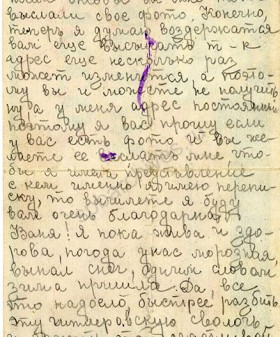 выслали свое фото, Конечно,
теперь я думаю воздержатся
вам еще высылать т-к
адрес еще несколько раз
может изменится, а поэто-
му вы и можете не получить
ну а у меня адрес постоянный
поэтому я вас прошу если
у вас есть фото и вы же-
лаете ее выслать мне что-
бы я имела представление
с кем именно я имею перепи-
ску, то вышлете я буду
вам очень благодарна.
Ваня! Я пока жива и здо-
рова, погода у нас морозная,
выпал снег, одним словам
зима пришла. Да, все
это надоело быстрее разбить
эту гитлеровскую сволочь